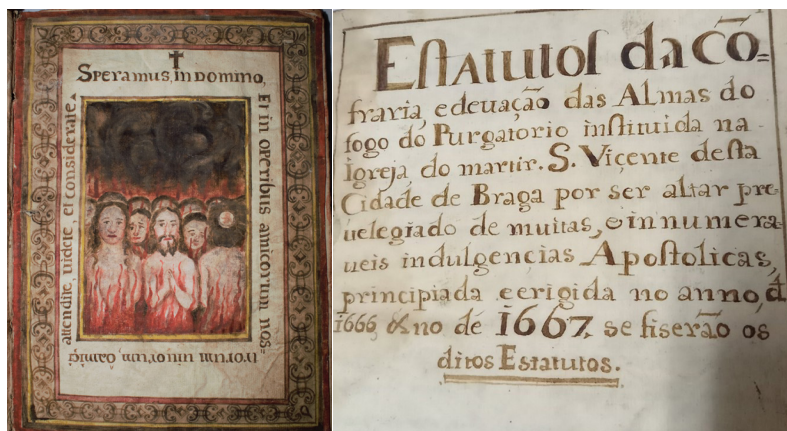 ✝
Speramus, in Domino,
Et in operibus amicorum nos=
trorum uiuorum,
attendite, uidete, et considerate
Eſtatutoſ da Cõ=
fraria, e deuação das Almas do
fogo do Purgatorio inſtituida na
igreja do martir. S. Viçente deſta
Cidade de Braga por ser altar pre
uelegiado de muitas, e innumera
ueis indulgencias Apoſtolicas,
principiada e erigida no anno, d
1666, & no de 1667, se fiserão os
ditos Estatutos.